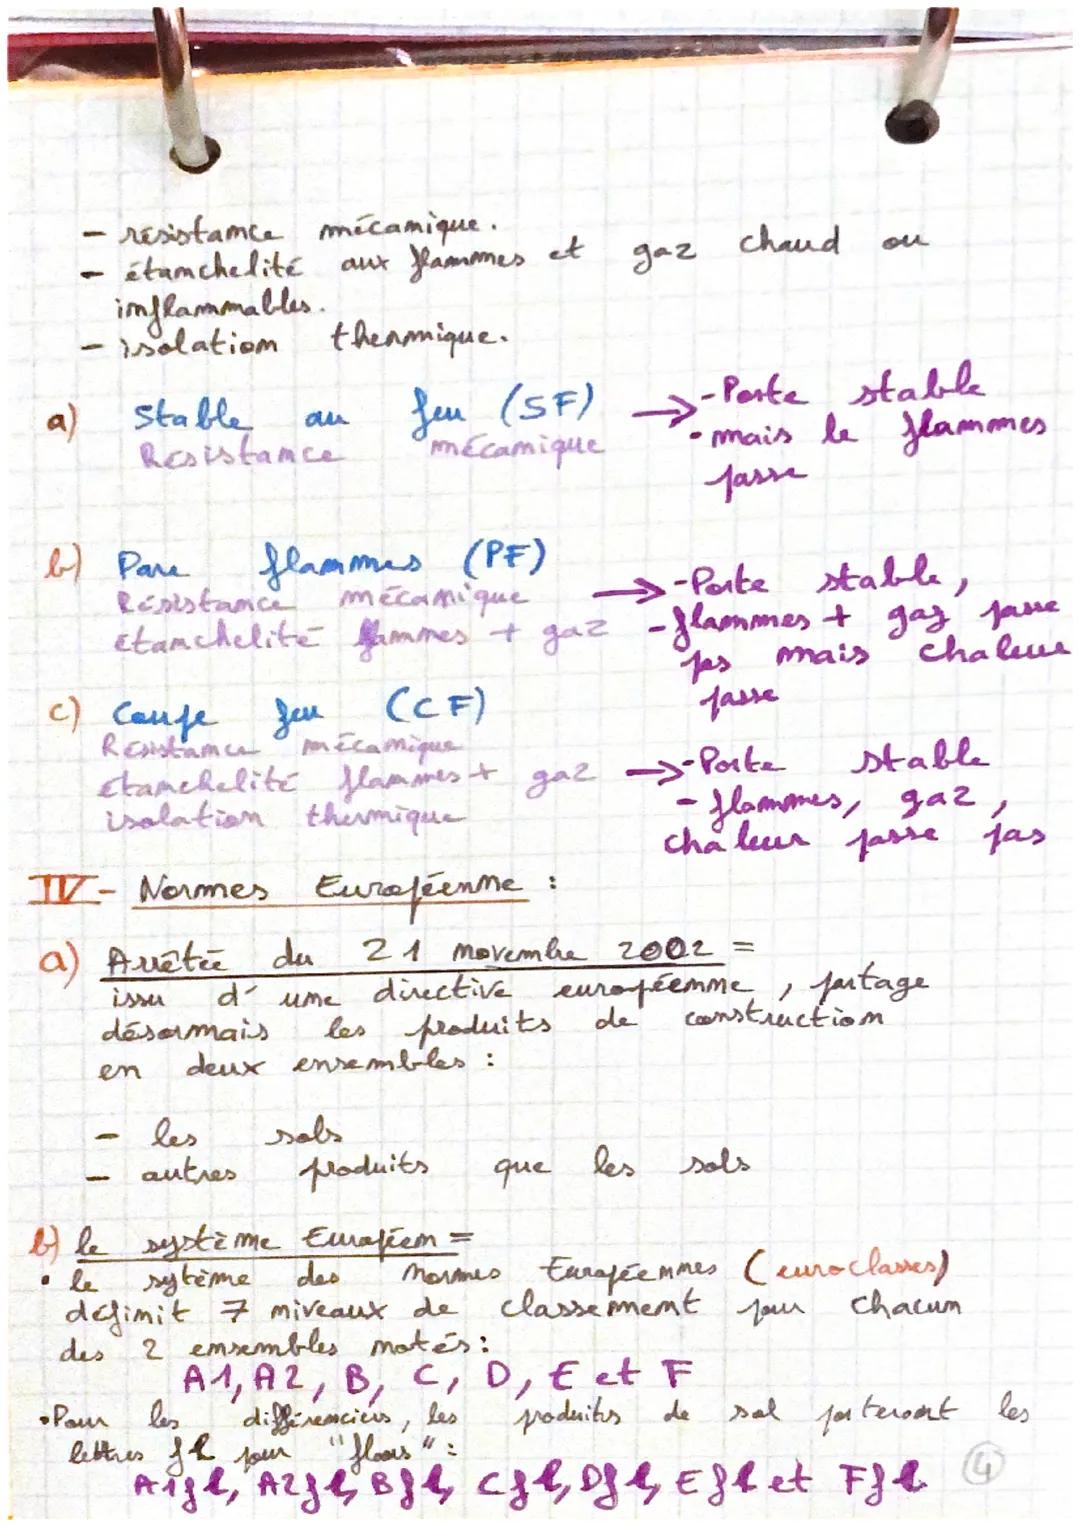 - résistance mécanique.
- étanchelité aux flammes et gaz chaud ou
inflammables.
- isolation thermique.
a) Stable au feu (SF) → - Porte stable
Résistance mécanique • mais le flammes
passe
b) Pare flammes (PF)
Résistance mécanique → - Porte stable,
étanchelité flammes + gaz - flammes + gaz passe
pas mais chaleur
passe
c) Coupe feu (CF)
Résistance mécanique
étanchelité flammes + gaz → - Porte stable
isolation thermique - flammes, gaz,
chaleur passe pas
IV - Normes Européenne :
a) Arrêtée du 21 novembre 2002 =
issu d'une directive européenne, partage
désormais les produits de construction
en deux ensembles :
- les sols
- autres produits que les sols
b) le système Européen =
• le sytème des normes Européennes (euroclasses)
définit 7 niveaux de classement pour chacun
des 2 ensembles notés :
A1, A2, B, C, D, E et F
• Pour les différenciers, les produits de sol porteront les
lettres fl pour "floors" :
A1fl, A2fl, Bfl, Cfl, Dfl, Efl et Ffl
4